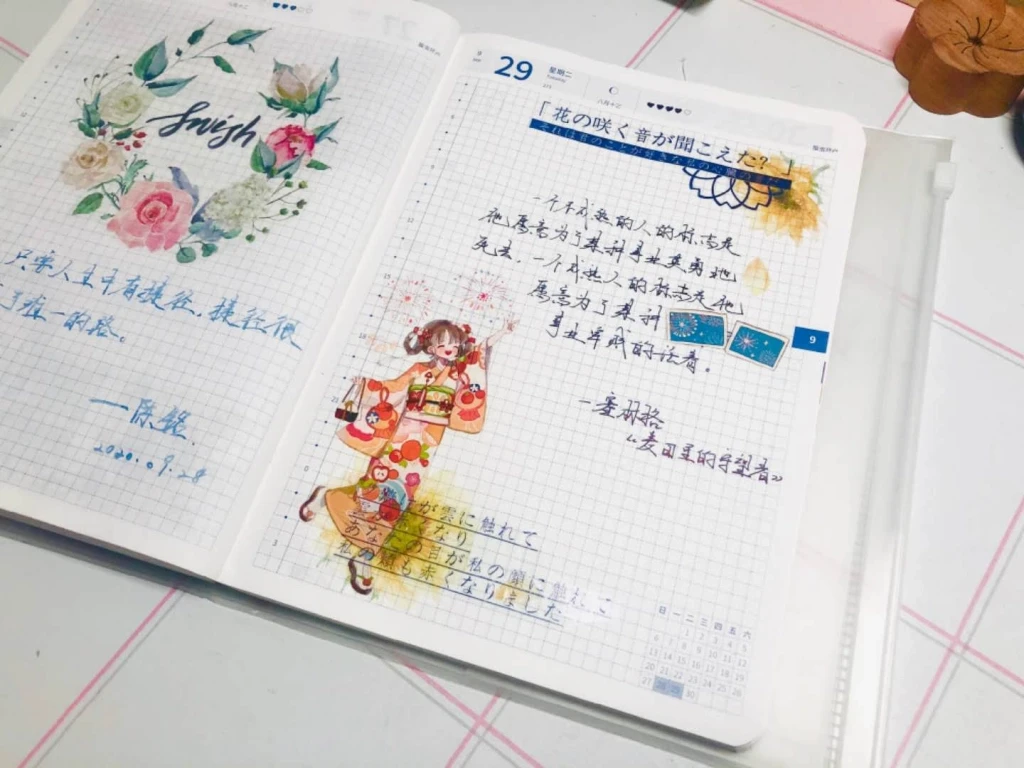 八月十二
只要人生中有捷径，捷径
了唯一的路。
——陈铭.
2020.09.28
9
29
星期二
Tuesday
八月十三
「花の咲く音が聞こえた? 」
それは君のことが好きな私の心臓の
一个不成熟的人的标志是
他愿意为了某种事业英勇地
死去，一个成熟人的标志是他
愿意为了某种
事业卑贱的活着。
9
—塞林格
《麦田里的守望者》
が雲に触れて
なり
の目が私の に触れて
私の頬も赤くなりました
日 一 二 三 四 五 六
1 2 3 4 5
6 7 8 9 10 11 12
13 14 15 16 17 18 19
20 21 22 23 24 25 26
27 28 29 30